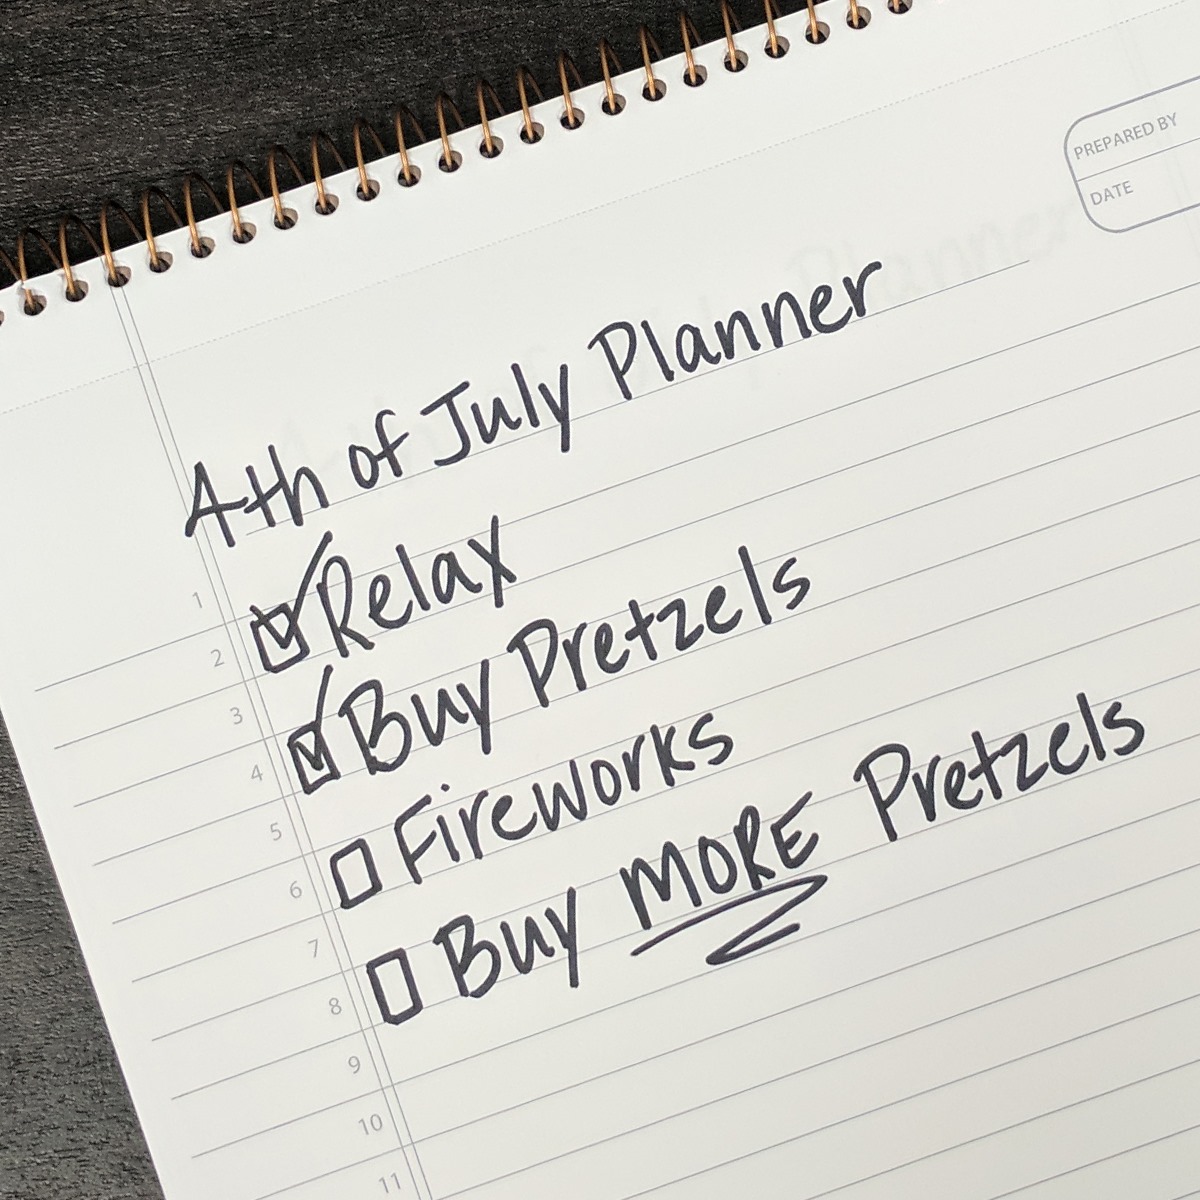 PREPARED BY
DATE
4th of July Planner
1
Relax
2
3
Buy Pretzels
4
5
Fireworks
6
7
Buy MORE Pretzels
8
9
10
11